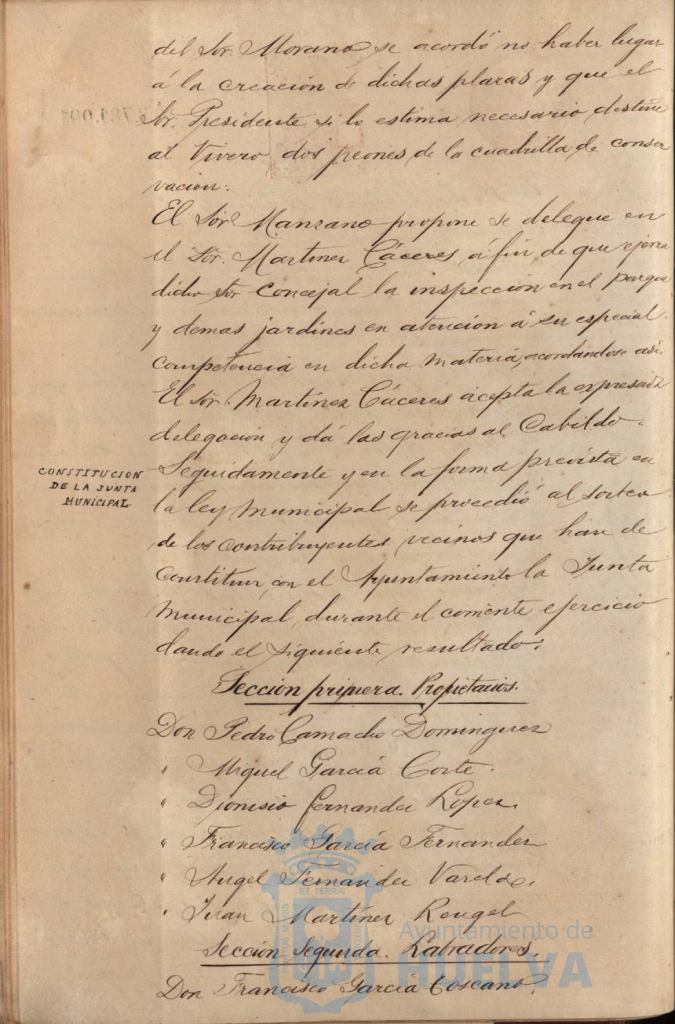 del Sor. Morano se acordó no haber lugar
á la creación de dichas plazas y que el
Sr. Presidente si lo estima necesario destine
al Vivero dos peones de la cuadrilla de conser
vacion.
El Sor. Manzano propone se delegue en
el Sor. Martinez Cáceres, á fin de que ejerza
dicho Sor Concejal la inspección en el parque
y demas jardines en atencion á su especial
competencia en dicha materia, acordandose asi.
El Sor. Martínez Cáceres acepta la expresada
delegación y dá las gracias al Cabildo.
CONSTITUCION
DE LA JUNTA
MUNICIPAL
Seguidamente y en la forma prevista en
la ley Municipal se procedió al sorteo
de los contribuyentes vecinos que han de
constituir, con el Ayuntamiento la Junta
Municipal, durante el corriente ejercicio
dando el siguiente resultado:
Sección primera. Propietarios.
Don Pedro Camacho Dominguez
" Miguel García Corte.
" Dionisio Fernandez Lopez.
" Francisco García Fernandez
" Angel Fernandez Varela.
" Juan Martínez Rengel
Sección Segunda. Labradores.
Don Francisco García Toscano.
Ayuntamiento de
HUELVA